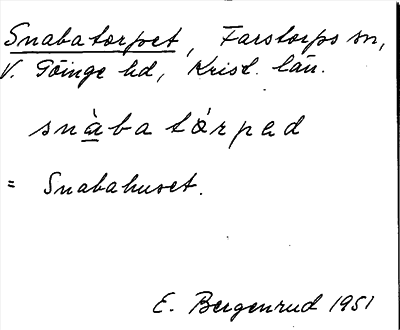 Snabatorpet, Farstorps sn,
V. Göinge hd, Krist. län.
snàba tórped
= Snabahuset.
E. Bergenrud 1951